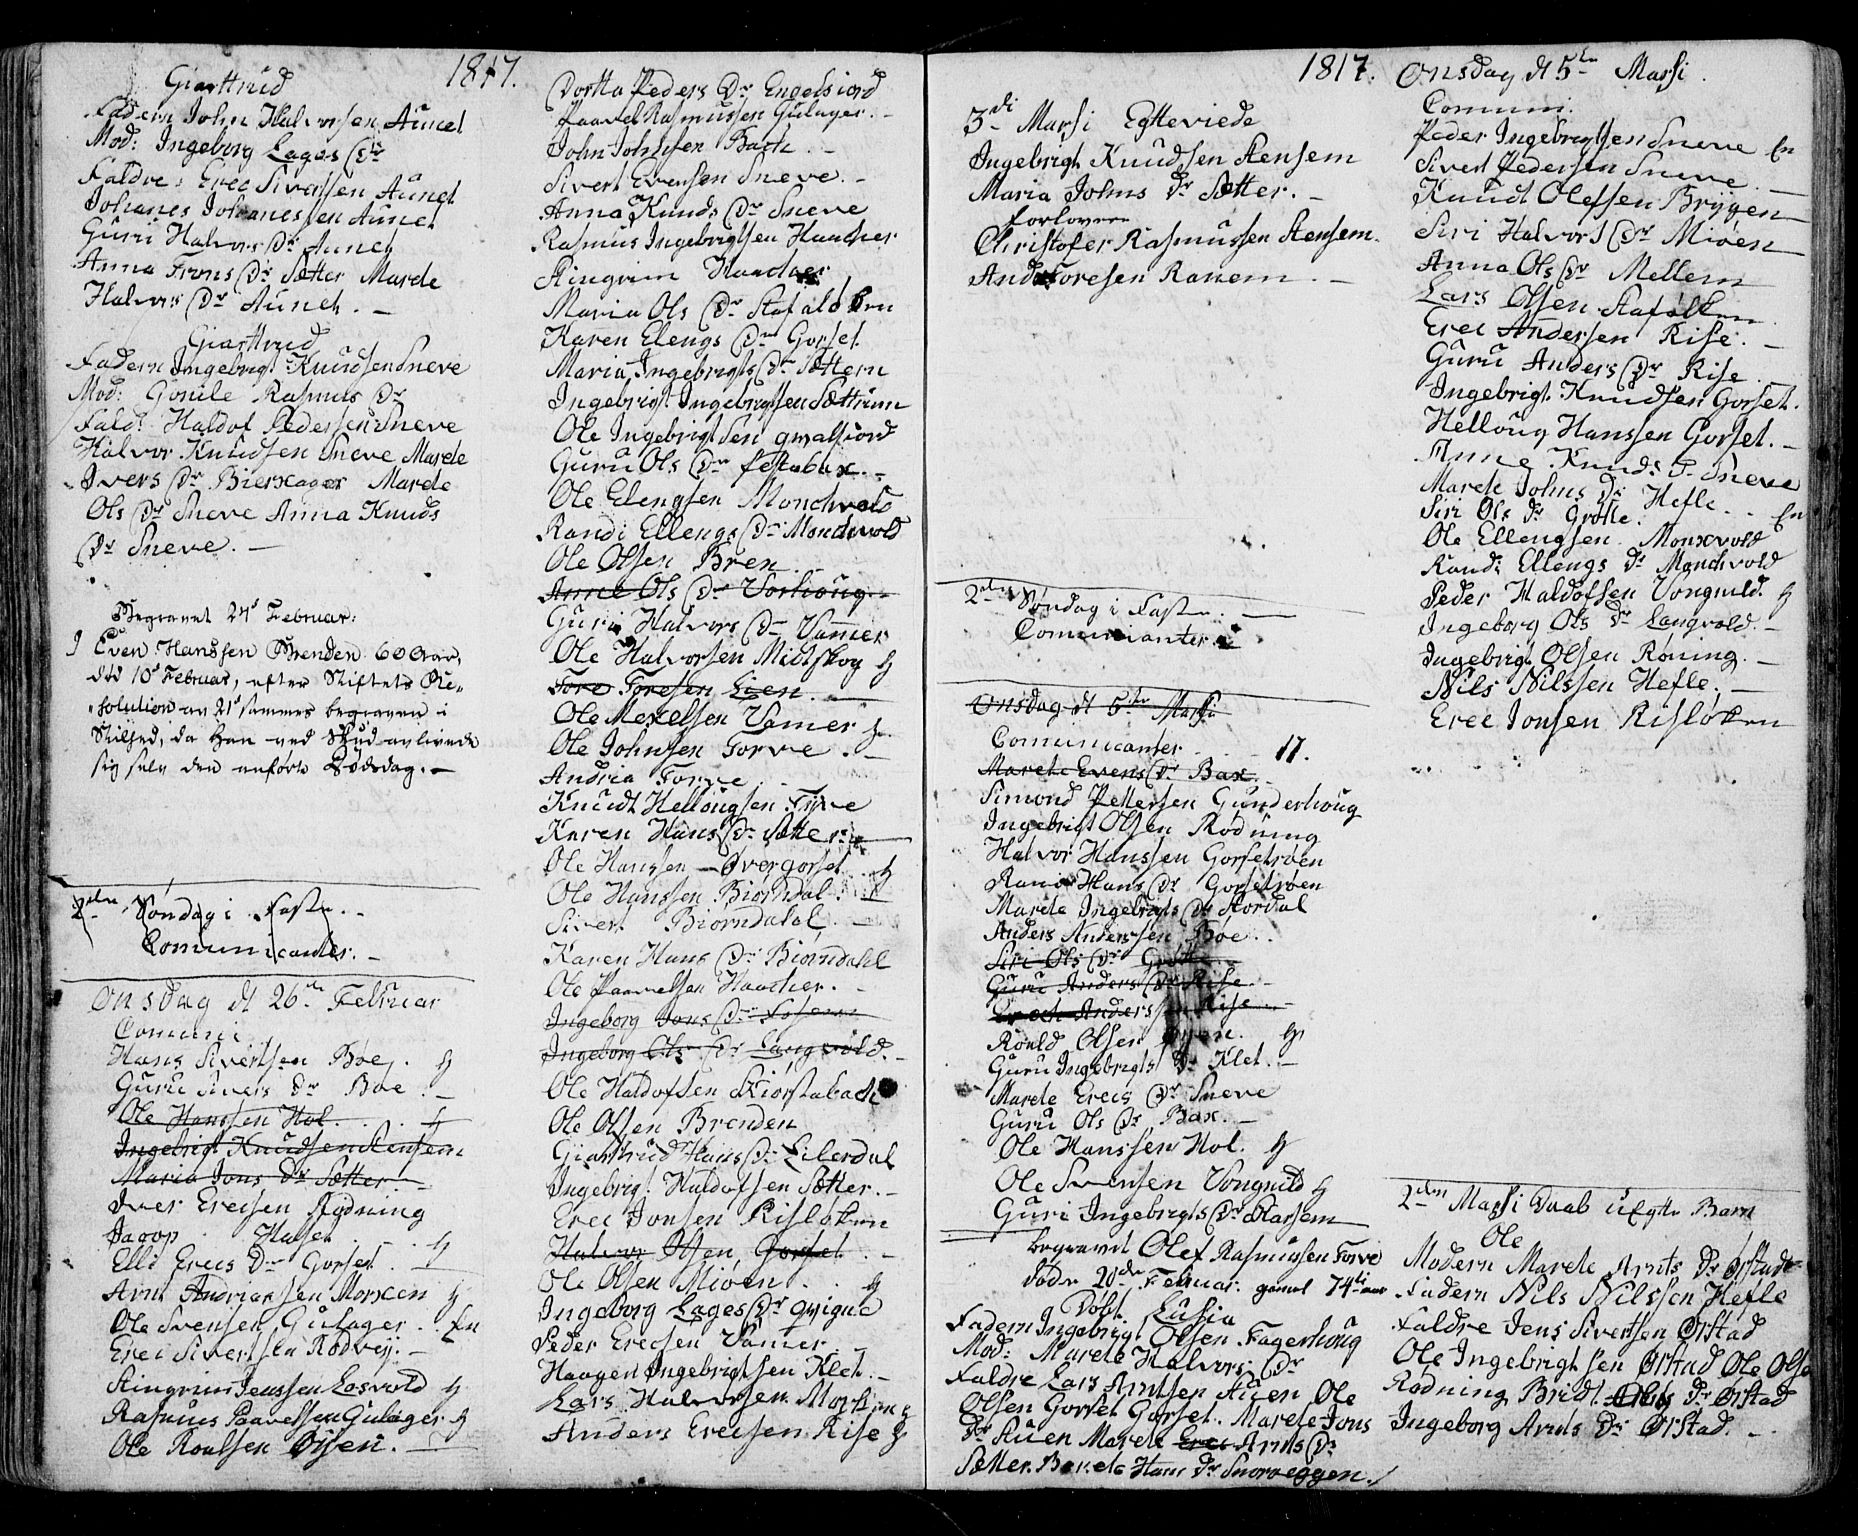 1817.
Giærttrud
Fadern John Halvorsen Aunet
Mod: Ingeborg Lages Dr
Faldre: Erec Siversen Aunet
Johanes Johanessen Aunet
Guru Halvors Dr Aunet
Anna Trons Dr Sætter Marete
Halvors Dr Aunet. –
Giærttrud
Fadern Ingebrigt Knudsen Sneve
Mod: Gonile Rasmus Dr
Fald: Haldol Pedersen Sneve
Halvor Knudsen Sneve Marete
Ivers Dr Bierkager Marete
Ols Dr Sneve Anna Knuds
Dr Sneve. –
Begravet 27d Februar:
Even Hanssen Brenden 60 aar,
død 10d Februar, efter Stiftets Re-
solution av 21d sammes begraven i
Stilhed, da han ved Skud avlivede
sig selv den anførte Dødsdag. –
2den Søndag i Faste. –
Comunicanter. –
Onsdag d 26de Februar
Comuni
Hans Sivertsen Bøe. g
Guru Sivers Dr Boe. –
Ole Hanssen Hol. . . g
Ingebrigt Knudsen Stensem
Maria Jons Dr Sætter. –
Iver Erecsen Rødning
Jacop Haset . . g
Elli Erecs Dr Gorset. –
Arnt Andriassen Morken g
Ole Svensen Gulager. . En
Erec Sivertsen Rodvej. –
Stingrim Jenssen Losvold g
Rasmus Paavelsen Gulager g
Ole Roaldsen Øjen. –
Dortta Peders Dr Engelsiord
Paavel Rasmussen Gulager. –
John Johnssen Bach. –
Sivert Evensen Sneve. –
Anna Knuds Dr Sneve
Rasmus Ingebrigtsen Haacher
Stingrim Haacher
Maria Ols Dr Stafaløken
Karen Elengs Dr Gorset
Maria Ingebrigts Dr Sættern
Ingebrigt Ingebrigtsen Sættrum
Ole Ingebrigtsen qvalsiord
Guru Ols Dr Festabax. –
Ole Elengsen Monchvold
Randi Ellengs Dr Monchvold
Ole Olsen Bren. –
Anne Ols Dr Vorhoug. –
Guri Halvors Dr Vammer
Ole Halvorsen Midtskog g
Tore Toresen Lien. –
Ole Mekelsen Vamer g
Ole Johnsen Torve. –
Andria Torve. –
Knudt Hellougsen Tyve
Karen Hans Dr Sætter.
Ole Hanssen Øvergorset g
Ole Hanssen Biorndal. g
Sivert Biorndalal. –
Karen Hans Dr Biørndahl
Ole Paavelsen Haacher. –
Ingeborg Jons Dr Fosem
Ingeborg Ols Dr Langvold. –
Ole Haldofsen Skiorstabach
Ole Olsen Brenden
Giærttrud Hans Dr Lilerdal
Ingebrigt Haldofsen Sætter. –
Erec Jonsen Risløken
Halvor Olsen Gorset. –
Ole Olsen Miøen. . g
Ingeborg Lages Dr qvigne
Peder Erecsen Vamer. –
Haagen Ingebrigtsen Klet. –
Lars Halvorsen Morken g
Anders Erecsen Rise g
1817.
3di Marsi Egtteviede
Ingebrigt Knudsen Stensem
Maria Johns Dr Sætter. –
forlovere
Christofer Rasmussen Stensem.
And Toresen Ranem. –
2den Søndag i Faste. –
Comunicanter.
Onsdag d 5te Marsi
Comunicanter 17.
Marete Evens Dr Bax. –
Simond Pettersen Gunderhoug
Ingebrigt Olsen Rødning
Halvor Hanssen Gorsetrøen
Rani Hans Dr Gorsetrøen
Marete Ingebrigts Dr Stordal
Anders Anderssen Bøe. .
Siri Ols Dr Grøtte. –
Guru Anders Dr Rise. –
Erech Anderssen Rise. –
Roald Olsen Øyen. g
Guru Ingebrigts Dr Klet. –
Marete Erecs Dr Sneve
Guru Ols Dr Bax. –
Ole Hanssen Hol. g
Ole Svensen Vongnild g
Guri Ingebrigts Dr Starsem
begravet Olef Rasmussen Torve
døde 20de Februar. gamel 74 aar
Døbt Lusia
Fadern Ingebrigt Olsen Fagerhoug
Mod: Marete Halvors Dr
Faldre Lars Arntsen Auen Ole
Olsen Gorset Gorset. Marete Jons
Dr Auen Marete Erec Arnts Dr
Sætter. Berete Hans Dr Snoreggen.
Onsdag d 5te Marsi.
Comuni:
Peder Ingebrigtsen Sneve En
Sivert Pedersen Sneve. –
Knudt Olefsen Bryggen
Siri Halvors Dr Miøen
Anna Ols Dr Mellem
Lars Olsen Stafølken
Erec Andersen Rise. –
Guru Anders Dr Rise.
Ingebrigt Knudsen Gorset.
Helloug Hanssen Gorset. –
Anne Knuds D. Sneve
Marete Johns Dr Hefle. . En
Siri Ols Dr Grøtte.
Ole Ellengsen Monkvold
Randi Ellengs Dr Monchvold
Peder Haldofsen Vongnild. g
Ingeborg Ols Dr Langvold. –
Ingebrigt Olsen Røning. –
Nils Nilssen Hefle. –
Erec Jonsen Risløken
2den Marsi Daab uEgtte Barn
Ole
Modern Marete Arnts Dr Ørstad
Fadern Nils Nilssen Hefle
Faldre Jens Sivertsen Ørstad
Ole Ingebrigtsen Ørstad Ole Olse
Rødning Bridt Dr Ørstad
Ingeborg Arnts Dr Ørstad. –